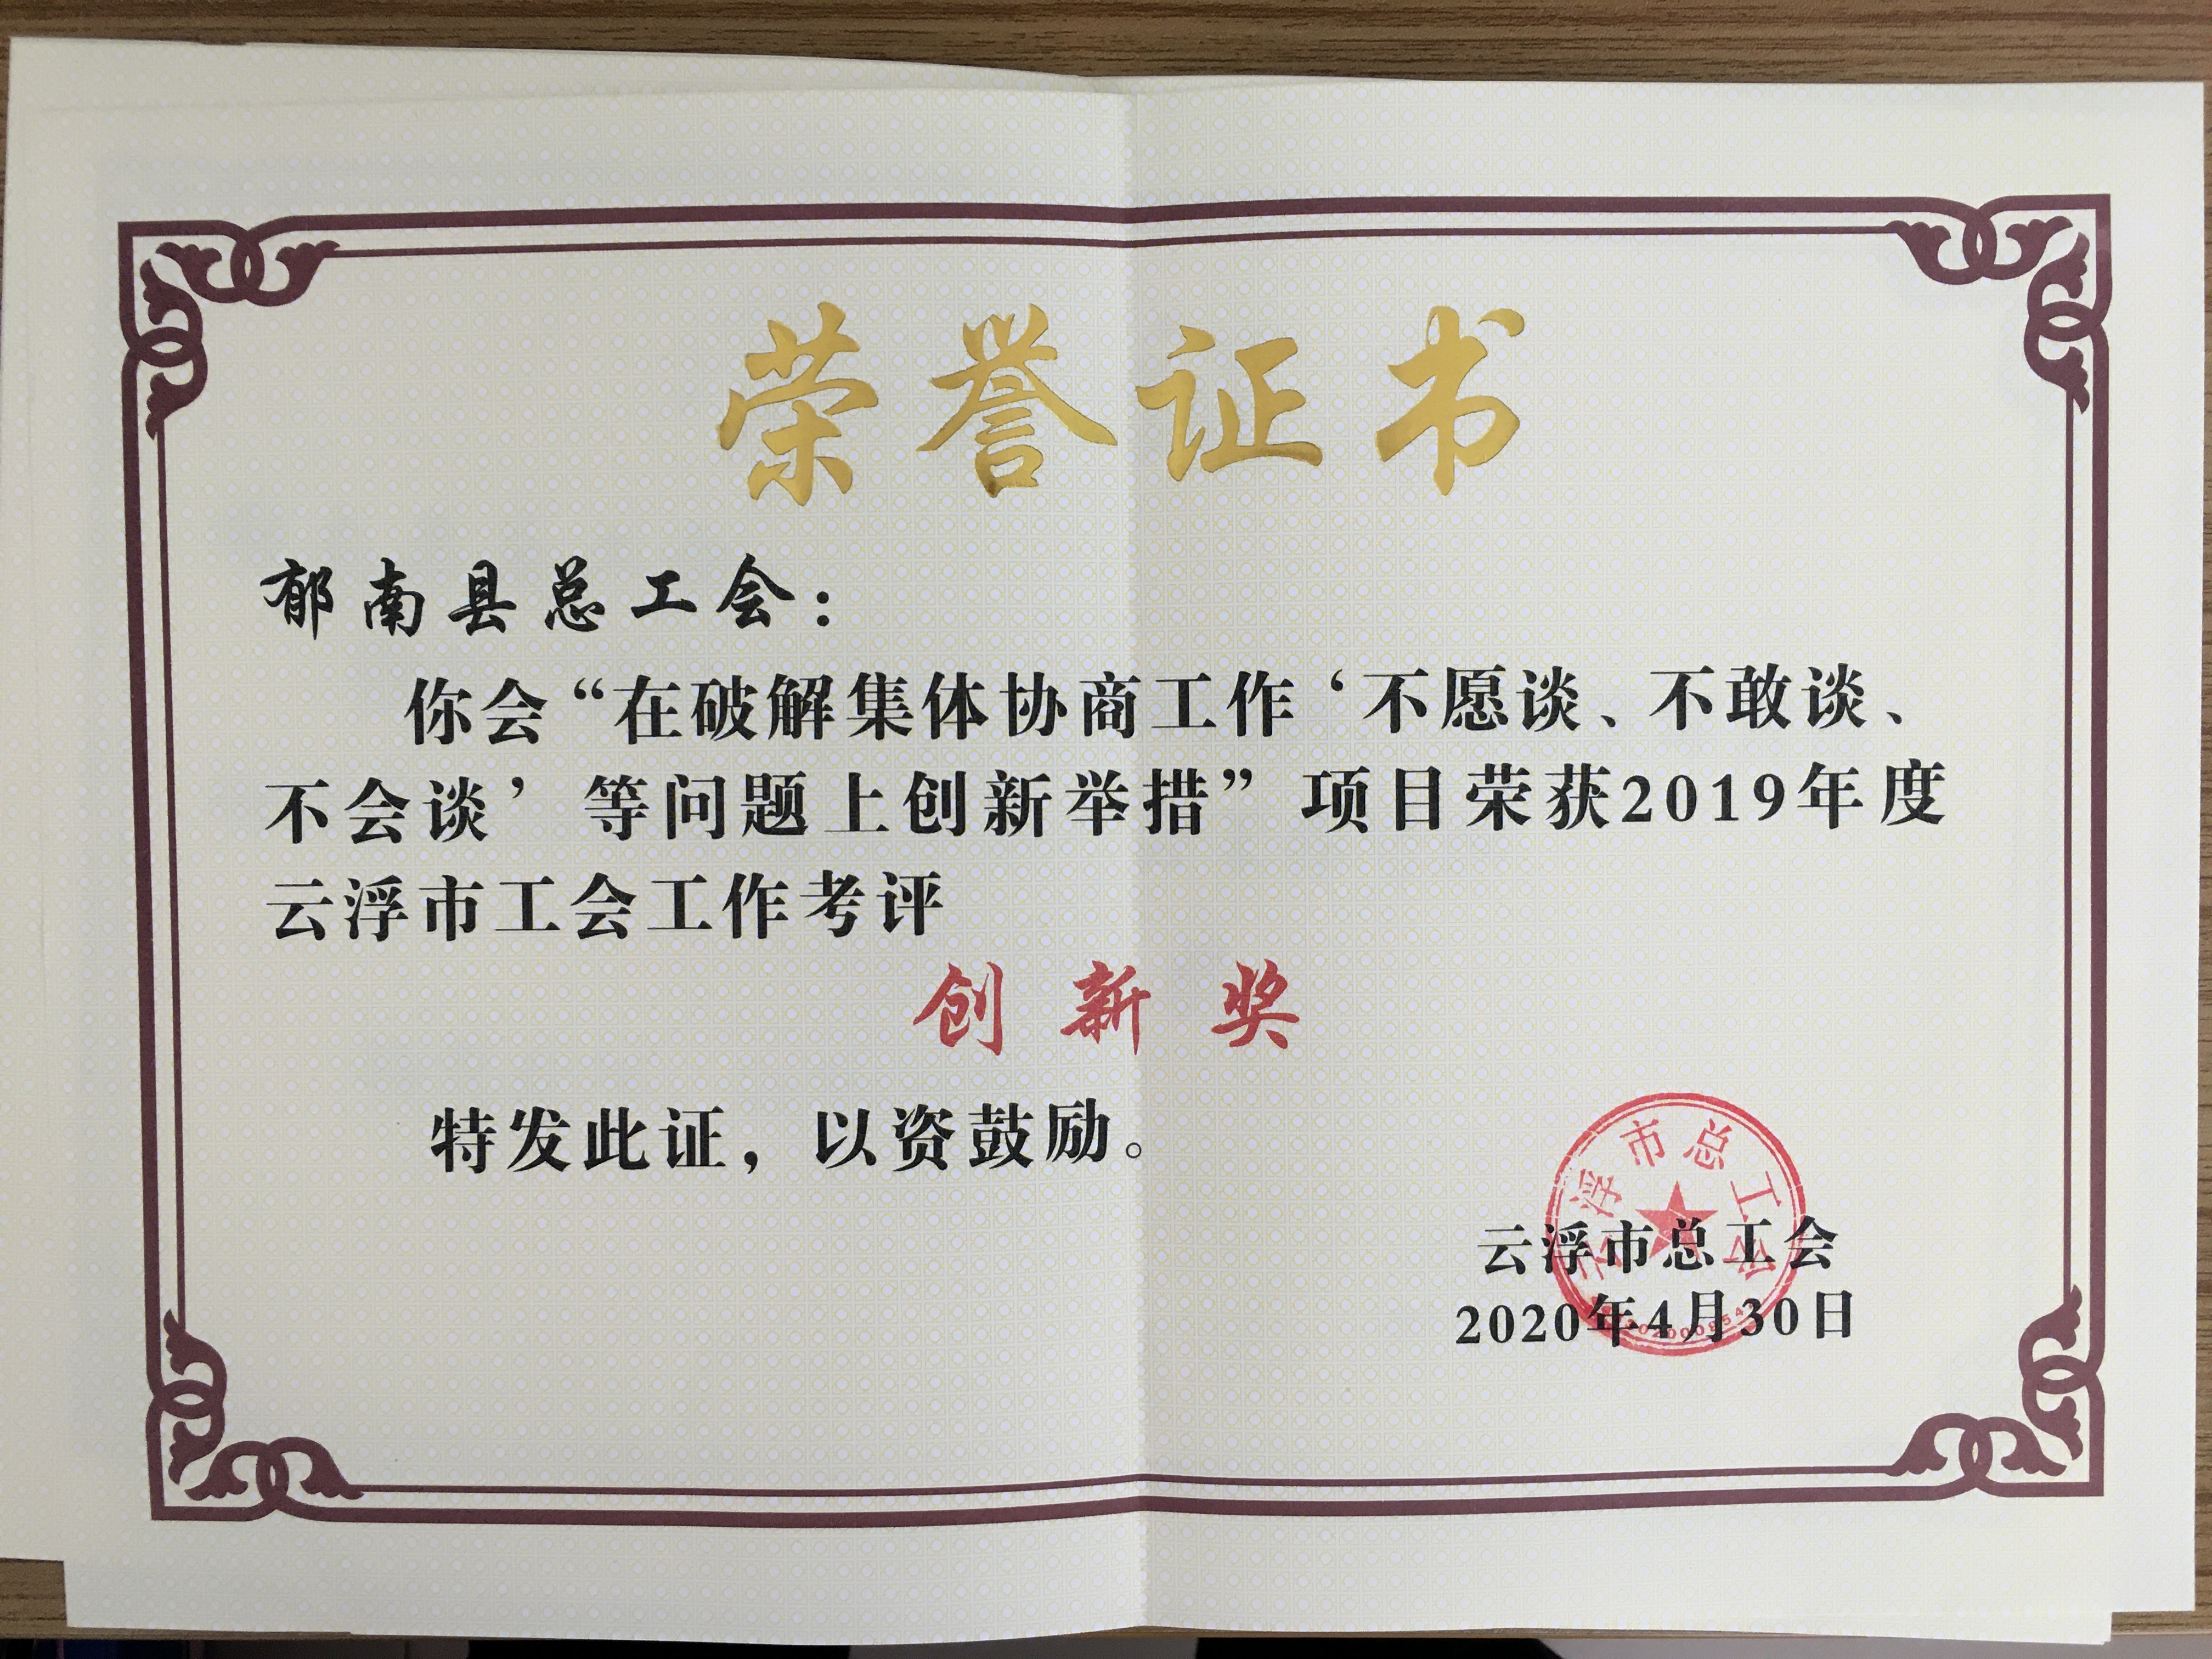 荣誉证书
郁南县总工会：
你会“在破解集体协商工作‘不愿谈、不敢谈、
不会谈’等问题上创新举措”项目荣获2019年度
云浮市工会工作考评
创新奖
特发此证，以资鼓励。
云浮市总工会
云浮市总工会
2020年4月30日